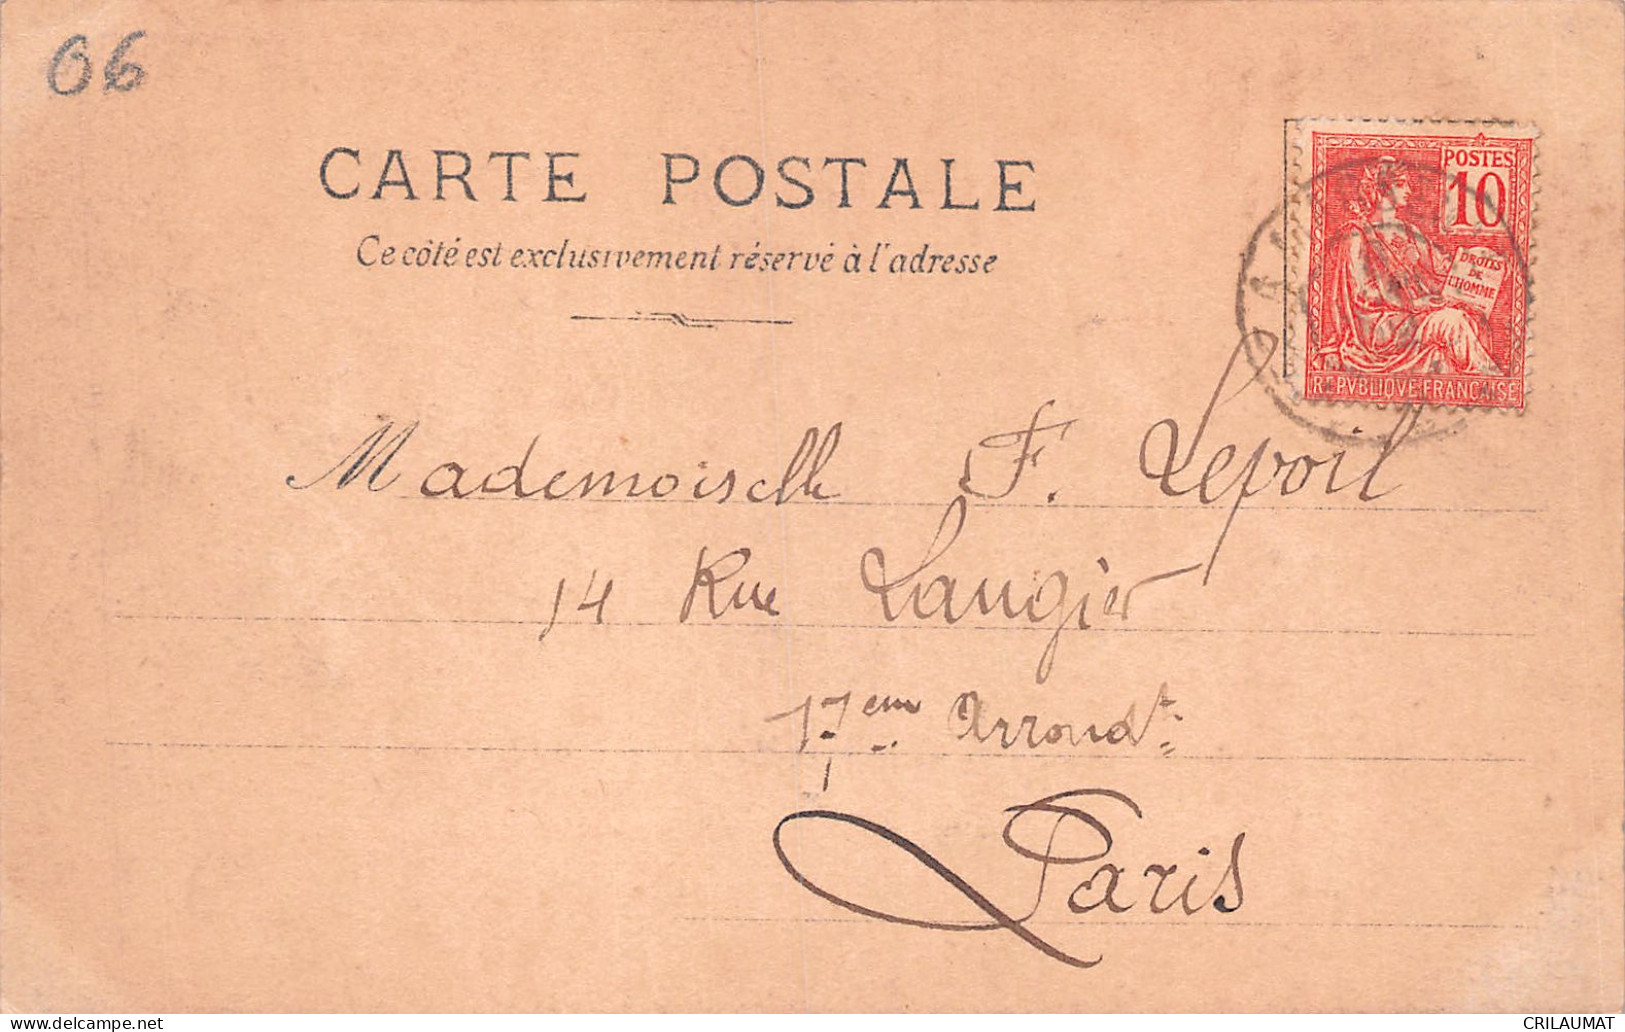 06
CARTE POSTALE
Ce côté est exclusivement réservé à l'adresse
POSTES
10
DROITS
DE
L'HOMME
REPVBLIQVE FRANÇAISE
Mademoiselle F. Lepoil
14 Rue Laugier
17em Arrondt
Paris
CRILAUMAT